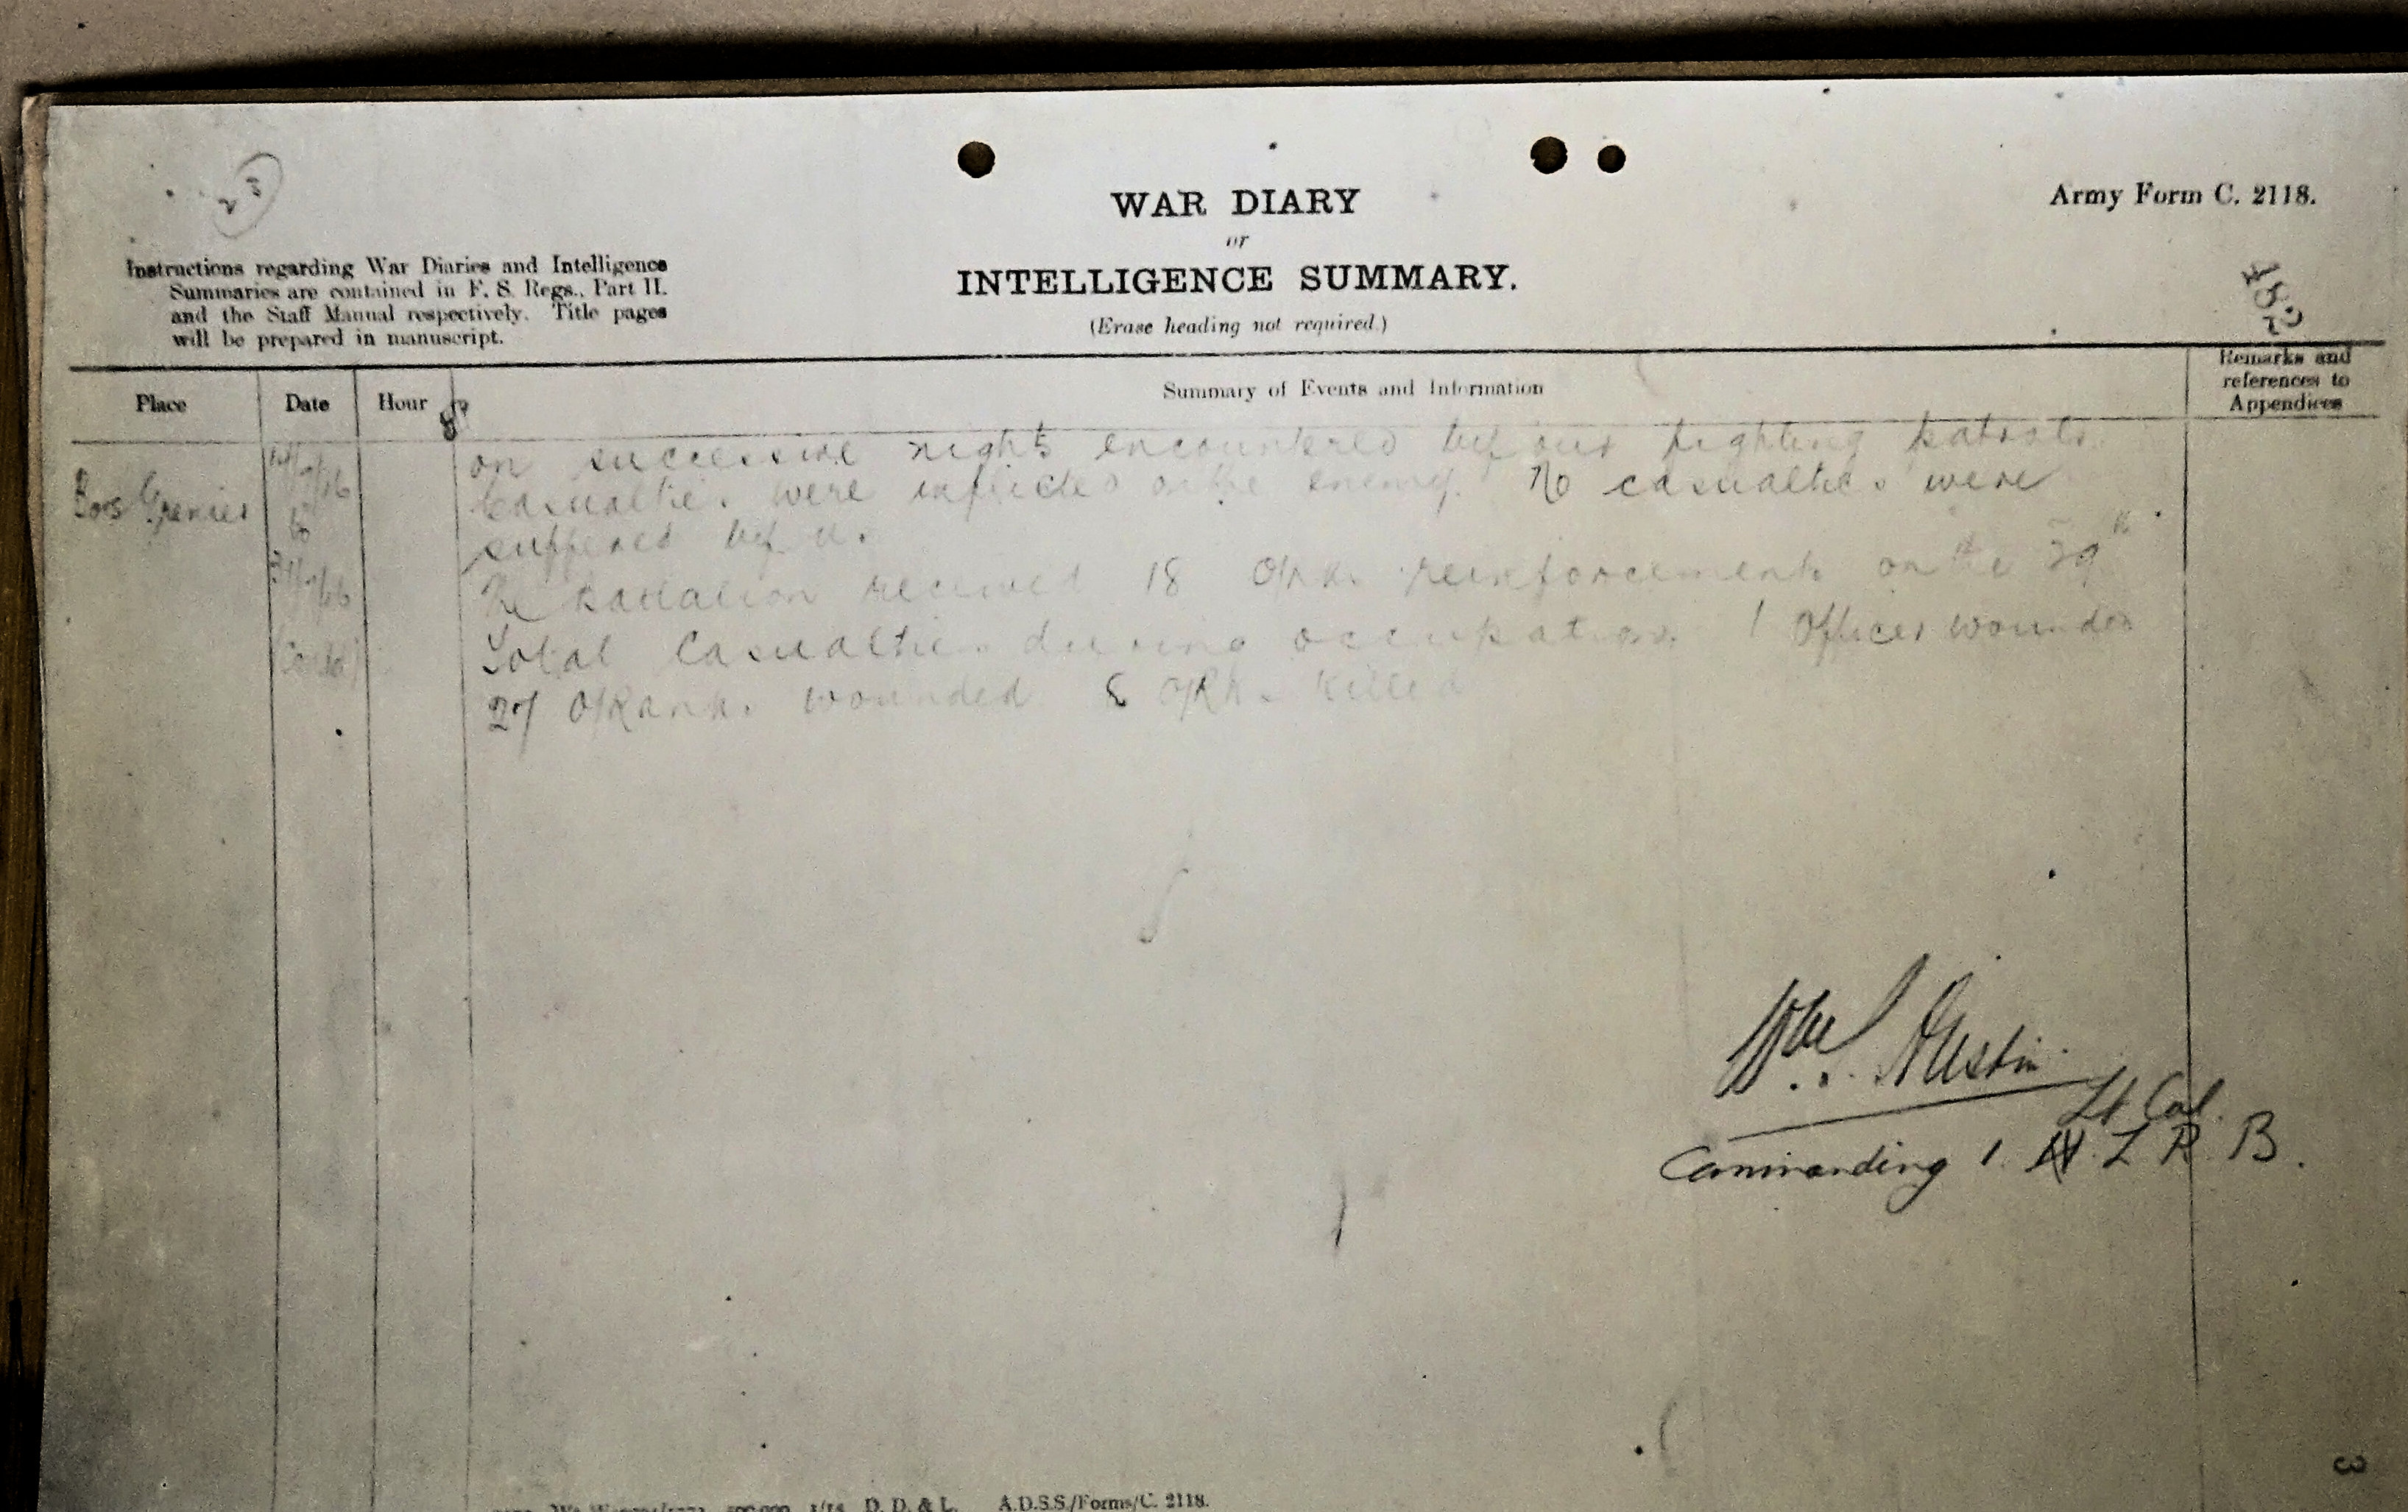 23
WAR DIARY
or
INTELLIGENCE SUMMARY.
(Erase heading not required.)
Army Form C. 2118.
182
Instructions regarding War Diaries and Intelligence
Summaries are contained in F. S. Regs., Part II.
and the Staff Manual respectively. Title pages
will be prepared in manuscript.
Place
Date
Hour
Summary of Events and Information
Remarks and
references to
Appendices
Bois Grenier
to
(Contd)
on successive nights encountered by our fighting patrols.
Casualties were inflicted on the enemy. No casualties were
suffered by us.
The Battalion received 18 O/Rks. reinforcements on the 29th
Total Casualties during occupation. 1 Officer wounded
27 O/Ranks. wounded 8 O/Rks. Killed
Austin
Lt Col.
Commanding 1. N. Z. R. B.
D. D. & L. A.D.S.S./Forms/C. 2118.
3